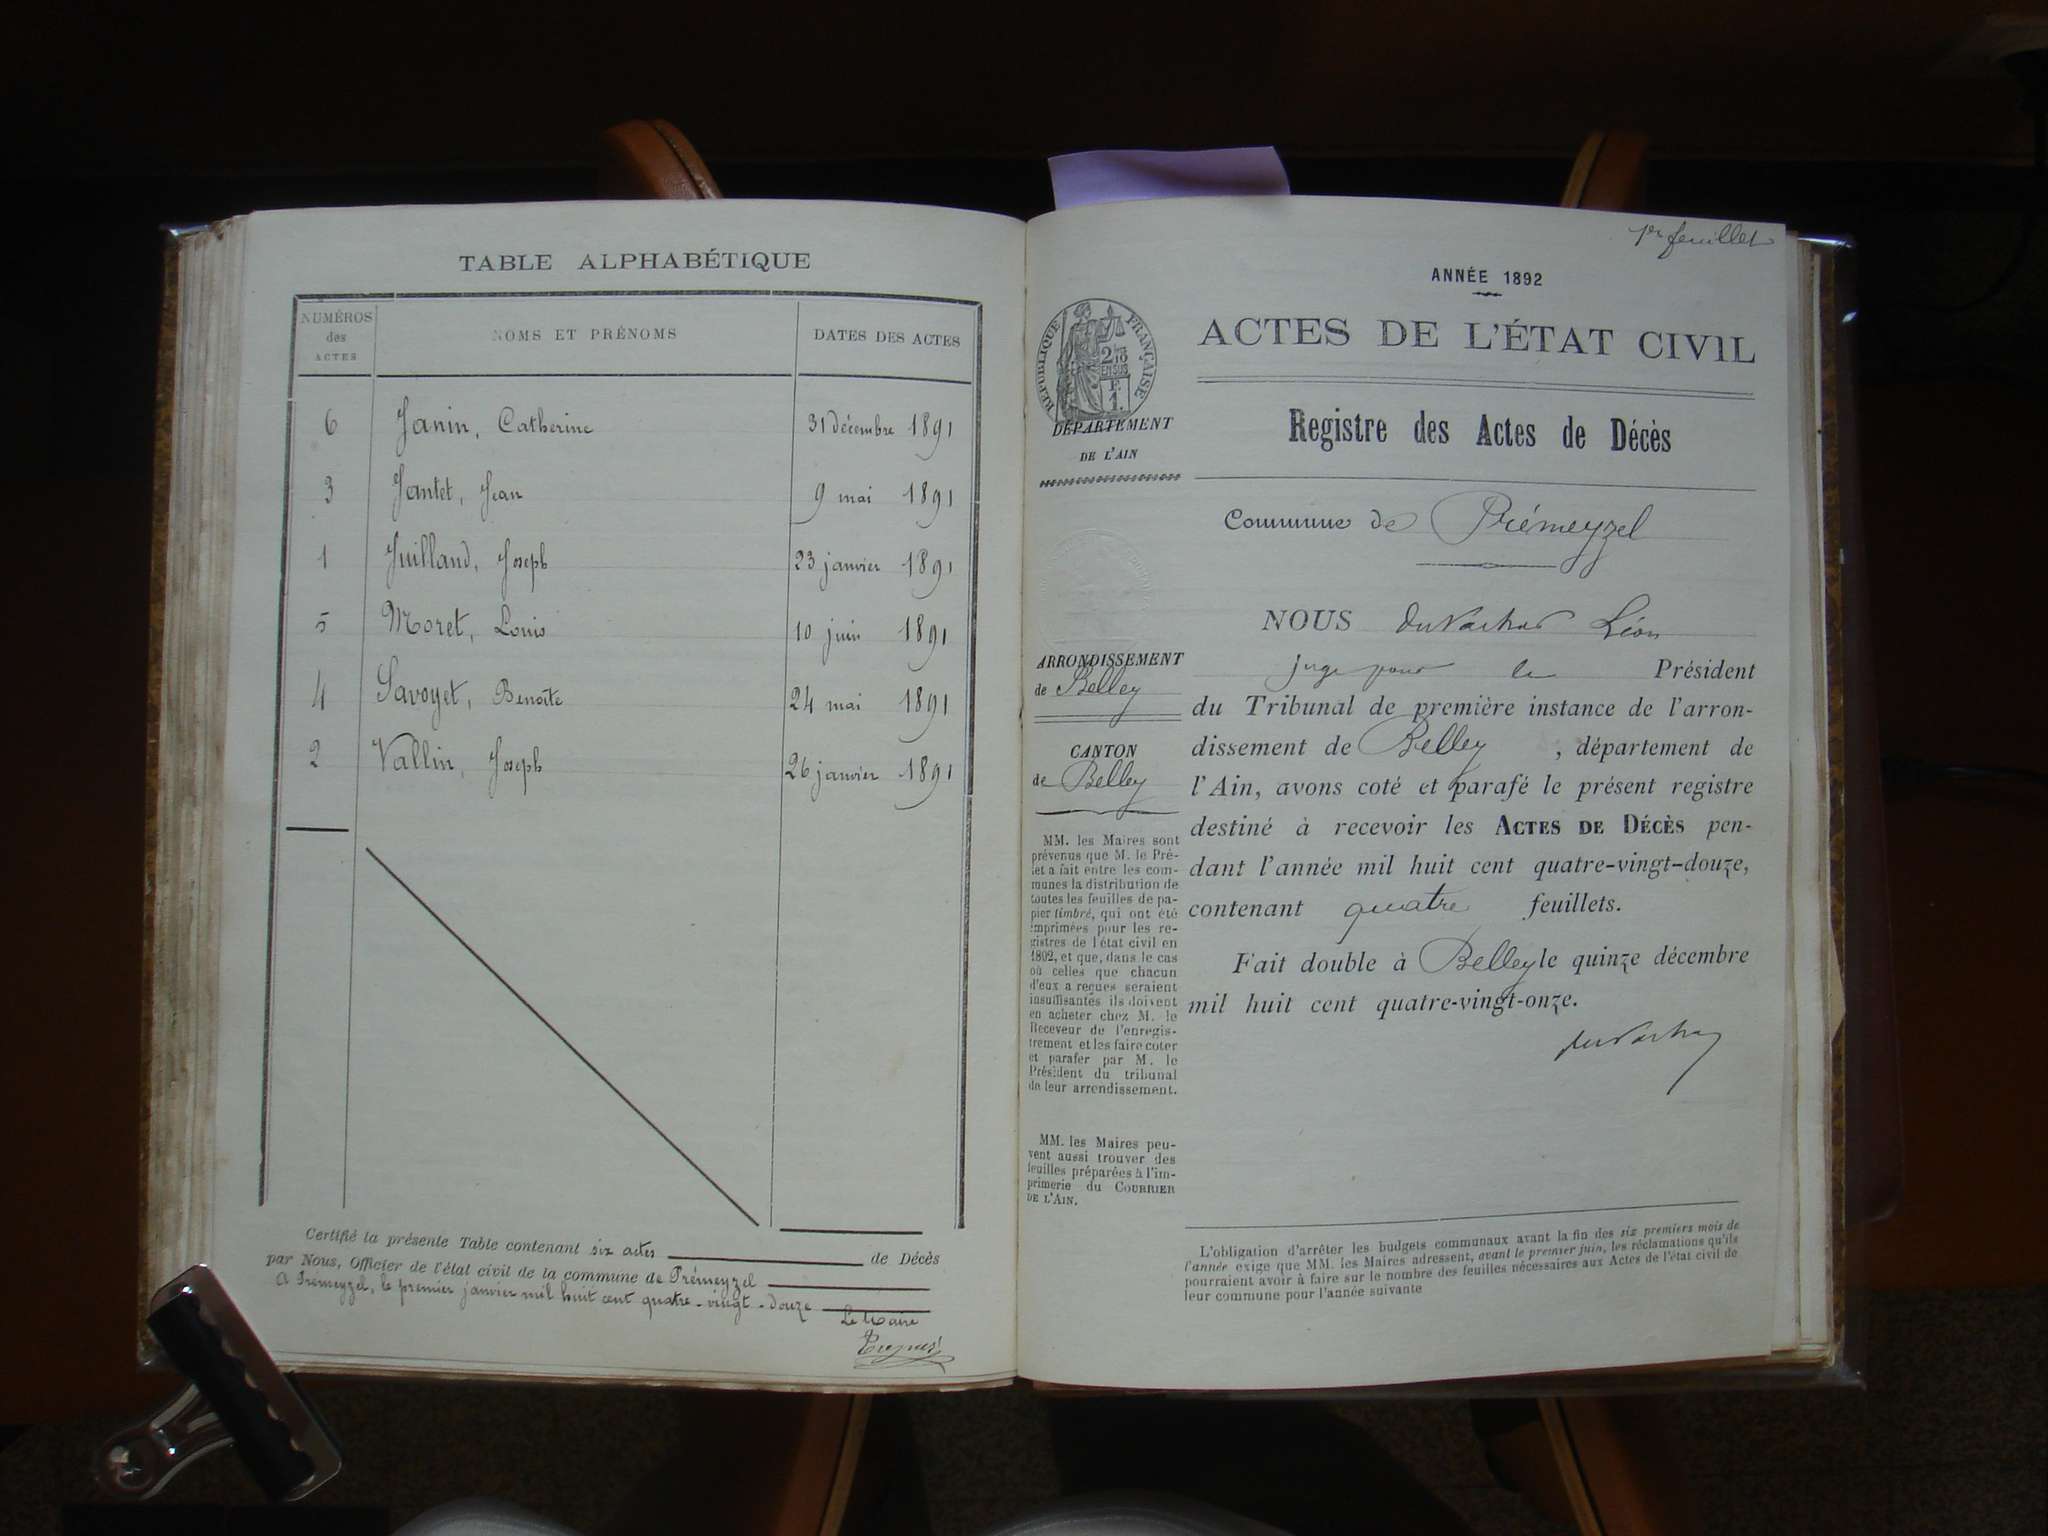 TABLE ALPHABÉTIQUE
NUMÉROS
des
ACTES
NOMS ET PRÉNOMS
DATES DES ACTES
6 Janin, Catherine 31 décembre 1891
3 Jantet, Jean 9 mai 1891
1 Juilland, Joseph 23 janvier 1891
5 Moret, Louis 10 juin 1891
4 Savoyet, Benoîte 24 mai 1891
2 Vallin, Joseph 26 janvier 1891
Certifié la présente Table contenant six actes de Décès
par Nous, Officier de l'état civil de la commune de Prémeyzel
A Prémeyzel, le premier janvier mil huit cent quatre-vingt-douze
Le Maire
1er feuillet
ANNÉE 1892
ACTES DE L'ÉTAT CIVIL
Registre des Actes de Décès
Commune de Prémeyzel
NOUS Léon
juge pour le Président
du Tribunal de première instance de l'arron-
dissement de Belley, département de
l'Ain, avons coté et parafé le présent registre
destiné à recevoir les ACTES DE DÉCÈS pen-
dant l'année mil huit cent quatre-vingt-douze,
contenant quatre feuillets.
Fait double à Belley le quinze décembre
mil huit cent quatre-vingt-onze.
RÉPUBLIQUE FRANÇAISE
DÉPARTEMENT
DE L'AIN
ARRONDISSEMENT
de Belley
CANTON
de Belley
MM. les Maires sont
prévenus que M. le Pré-
fet a fait entre les com-
munes la distribution de
toutes les feuilles de pa-
pier timbré, qui ont été
imprimées pour les re-
gistres de l'état civil en
1892, et que, dans le cas
où celles que chacun
d'eux a reçues seraient
insuffisantes ils doivent
en acheter chez M. le
Receveur de l'enregis-
trement et les faire coter
et parafer par M. le
Président du tribunal
de leur arrondissement.
MM. les Maires peu-
vent aussi trouver des
feuilles préparées à l'im-
primerie du COURRIER
DE L'AIN.
L'obligation d'arrêter les budgets communaux avant la fin des six premiers mois de
l'année exige que MM. les Maires adressent, avant le premier juin, les réclamations qu'ils
pourraient avoir à faire sur le nombre des feuilles nécessaires aux Actes de l'état civil de
leur commune pour l'année suivante